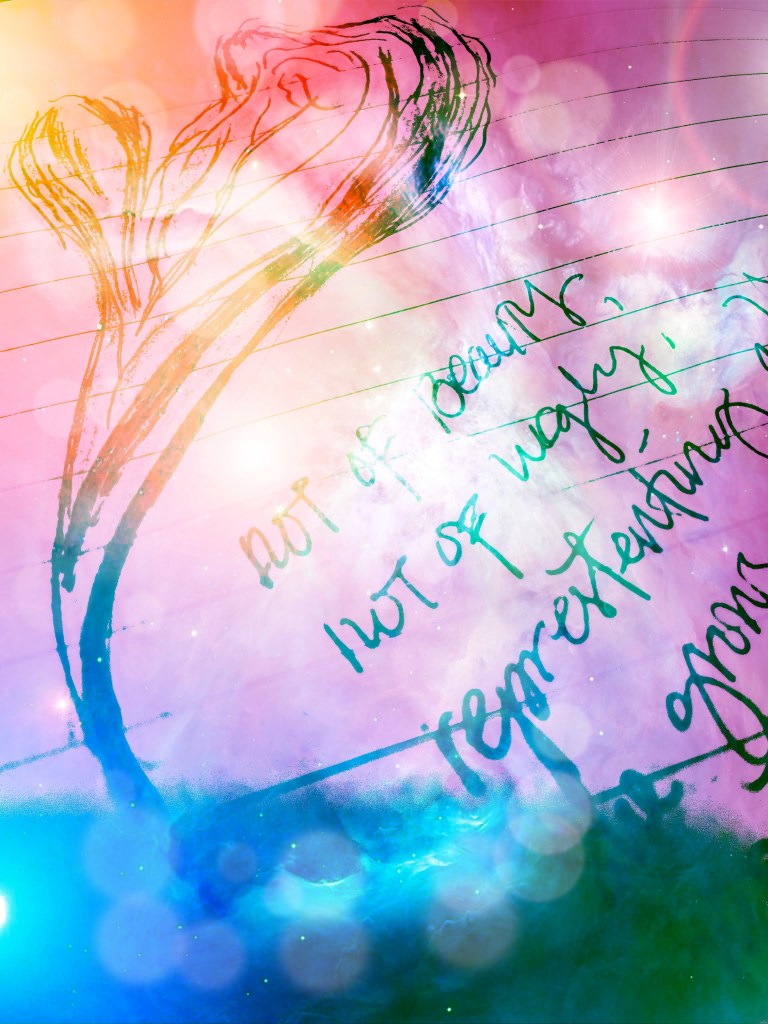 not of Beauty,
not of ugly,
represtenting
grow